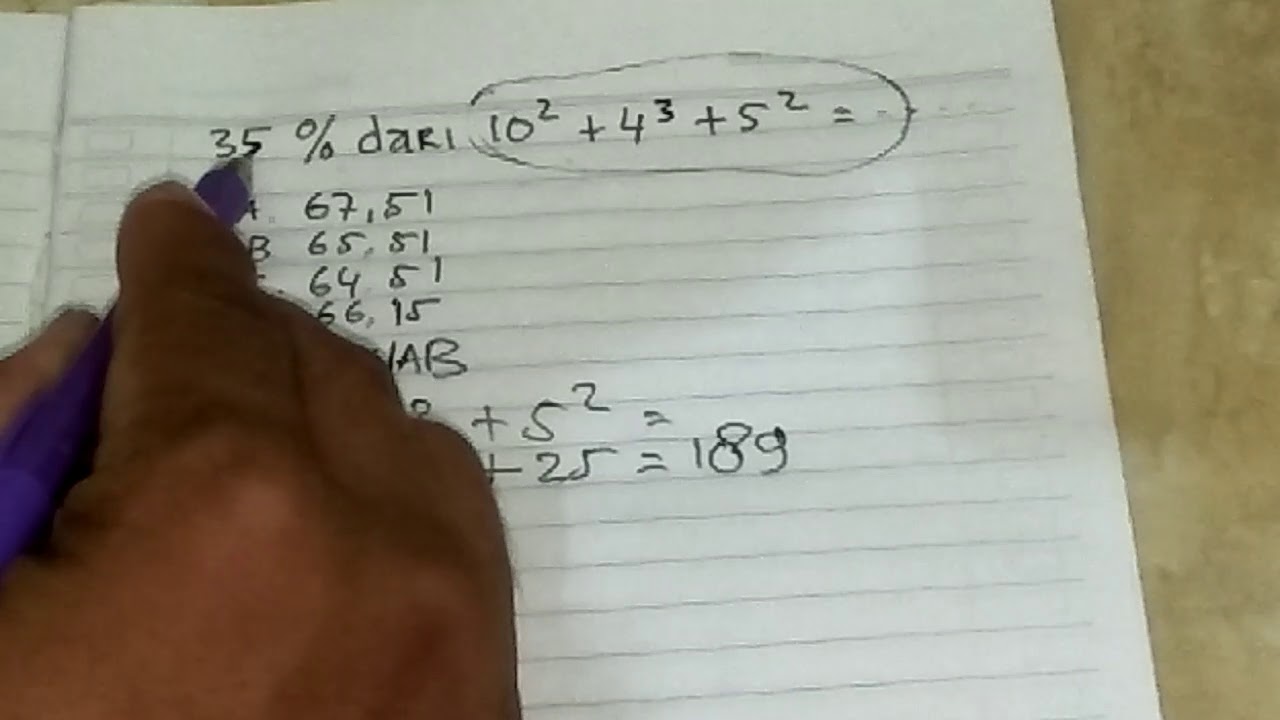 35 % dari 10² + 4³ + 5² = ........
A. 67,51
B 65,51
64,51
66,15
WAB
+ 5² =
+ 25 = 189